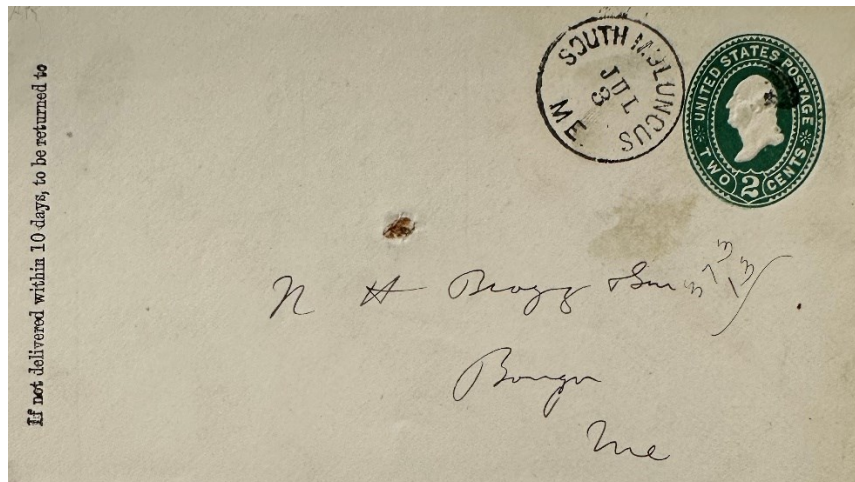 If not delivered within 10 days, to be returned to
SOUTH MOLUNCUS
JUL
3
ME.
UNITED STATES POSTAGE
TWO 2 CENTS
N H Bragg & Son
Bangor
Me